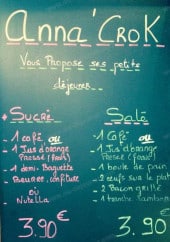 Anna'Crok
Vous Propose ses petits
déjeuner
Sucré
- 1 café ou
- 1 Jus d'orange
Pressé (frais)
- 1 demi-Baguette
- Beurre, confiture
ou
Nutella
3.90€
Salé
- 1 Café ou
- 1 Jus d'orange
Pressé (frais)
- 1 boule de pain
- 2 œufs sur le plat
- 2 Bacon grillé
- 1 tranche
3.90€